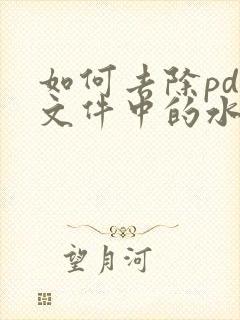 如何去除pd
文件中的水
望月河